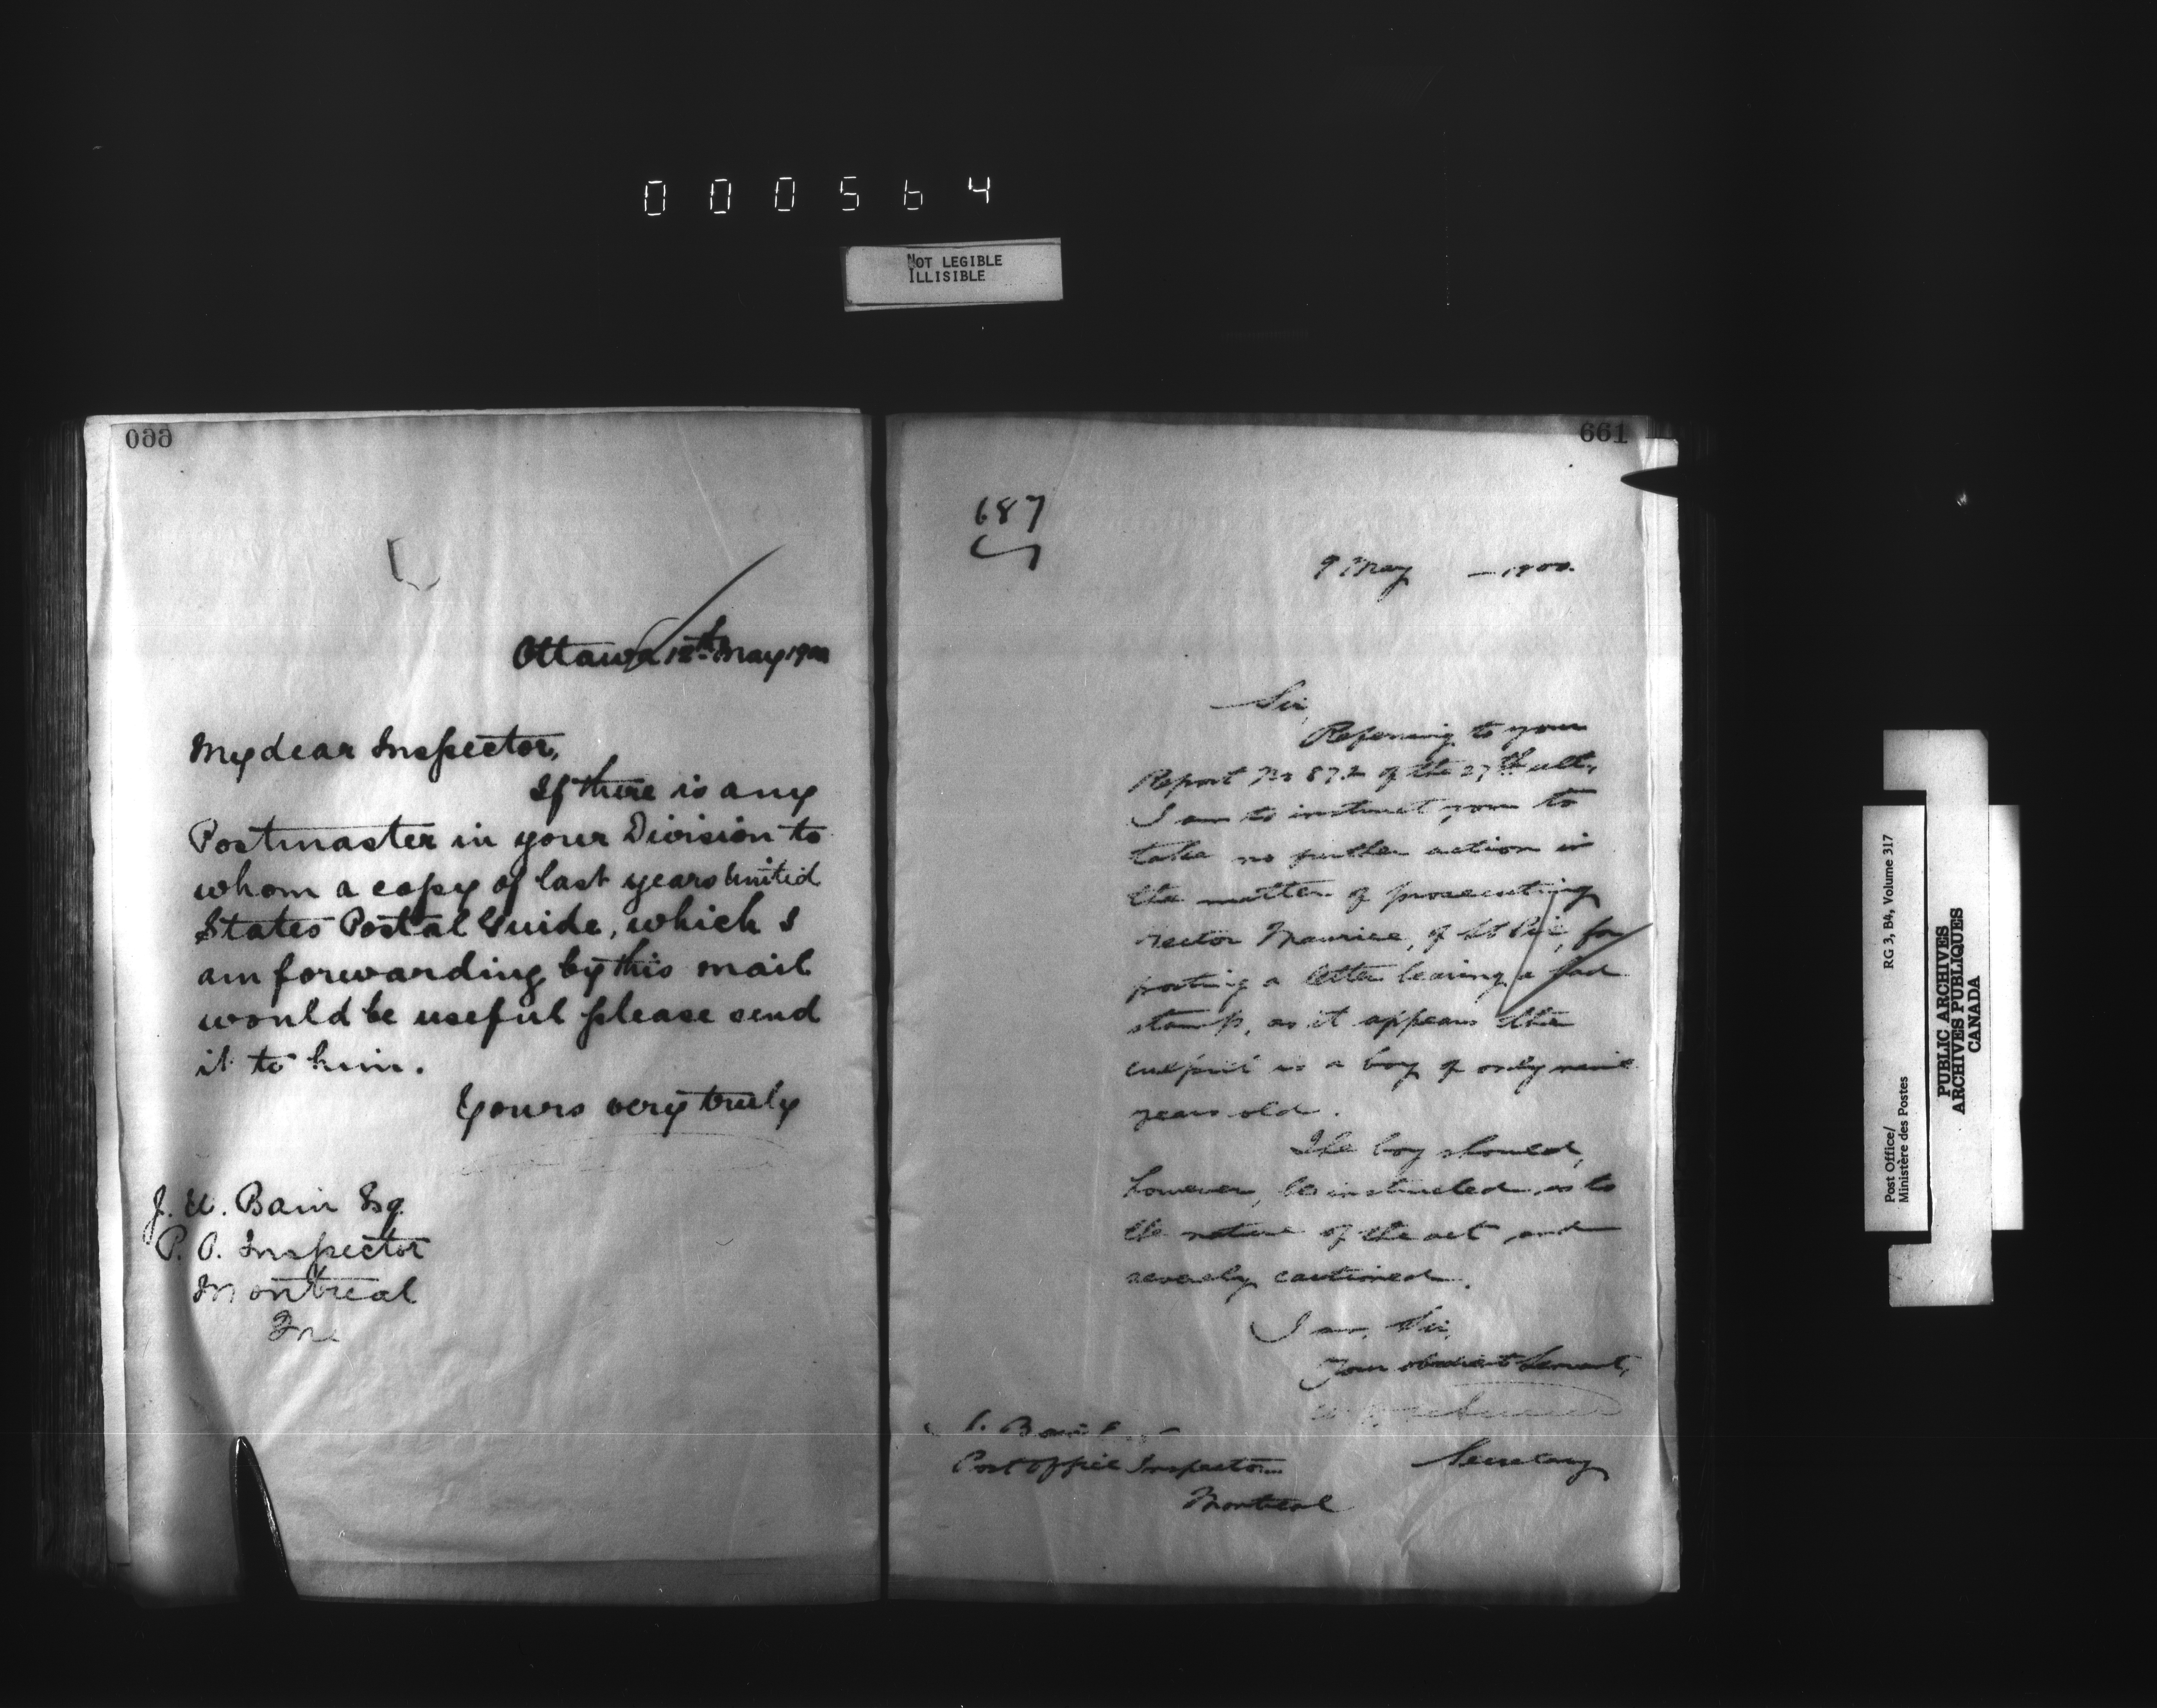 000564
NOT LEGIBLE
ILLISIBLE
660
Ottawa 12th May 1900
My dear Inspector,
If there is any
Postmaster in your Division to
whom a copy of last years United
States Postal Guide, which I
am forwarding by this mail
would be useful please send
it to him.
Yours very truly
J. U. Bain Esq.
P. O. Inspector
Montreal
661
687
9 May — 1900.
Sir,
Referring to your
Report No 872 of the 27th ult,
I am to instruct you to
take no further action in
the matter of prosecuting
Hector Maurice, of St Pie, for
posting a letter bearing a
stamp, as it appears the
culprit is a boy of only nine
years old.
The boy should,
however, be instructed as to
the nature of the act and
severely cautioned.
I am, Sir,
Your obedient Servant,
Secretary
Bain
Post Office Inspector
Montreal
Post Office/
Ministère des Postes
RG 3, B4, Volume 317
PUBLIC ARCHIVES
ARCHIVES PUBLIQUES
CANADA